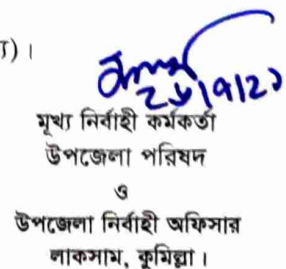 )।
মূখ্য নির্বাহী কর্মকর্তা
উপজেলা পরিষদ
ও
উপজেলা নির্বাহী অফিসার
লাকসাম, কুমিল্লা।